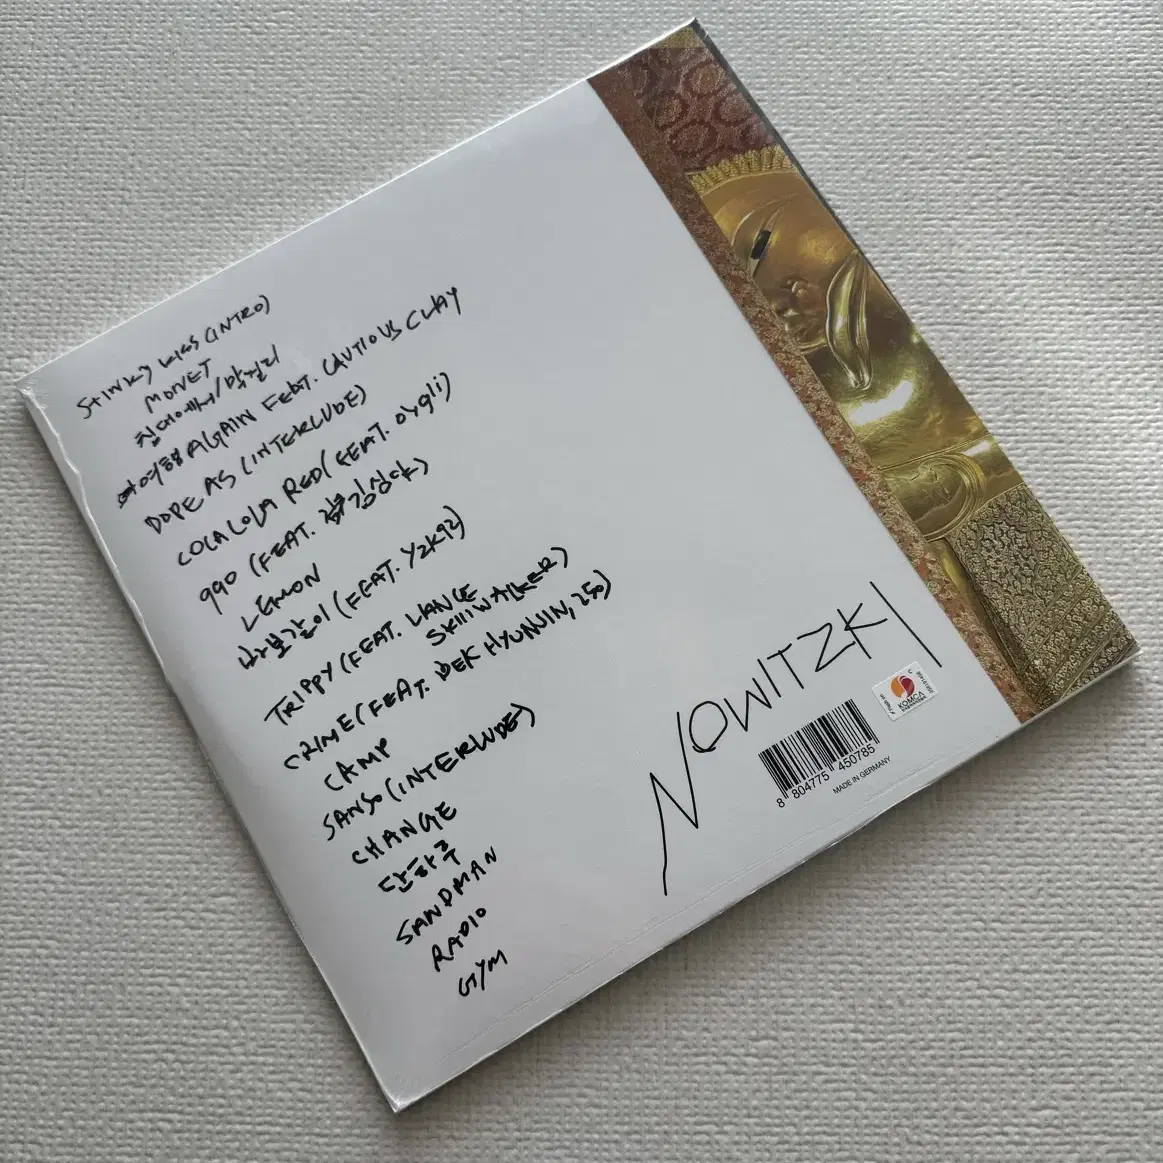 STINKY KISS (INTRO)
MONET
침대에서/막걸리
여행AGAIN FEAT. CAUTIOUS CLAY
DOPE AS (INTERLUDE)
COCA COLA RED (FEAT. oygli)
990 (FEAT. 김심야)
LEMON
바보같이 (FEAT. YZK92)
TRIPPY (FEAT. LANCE
SKIIIWALKER)
CRIME (FEAT. BEK HYUNJIN, 250)
CAMP
SANSO (INTERLUDE)
CHANGE
단하루
SANDMAN
RADIO
GYM
NOWITZKI
KOMCA
8 804775 450785
MADE IN GERMANY